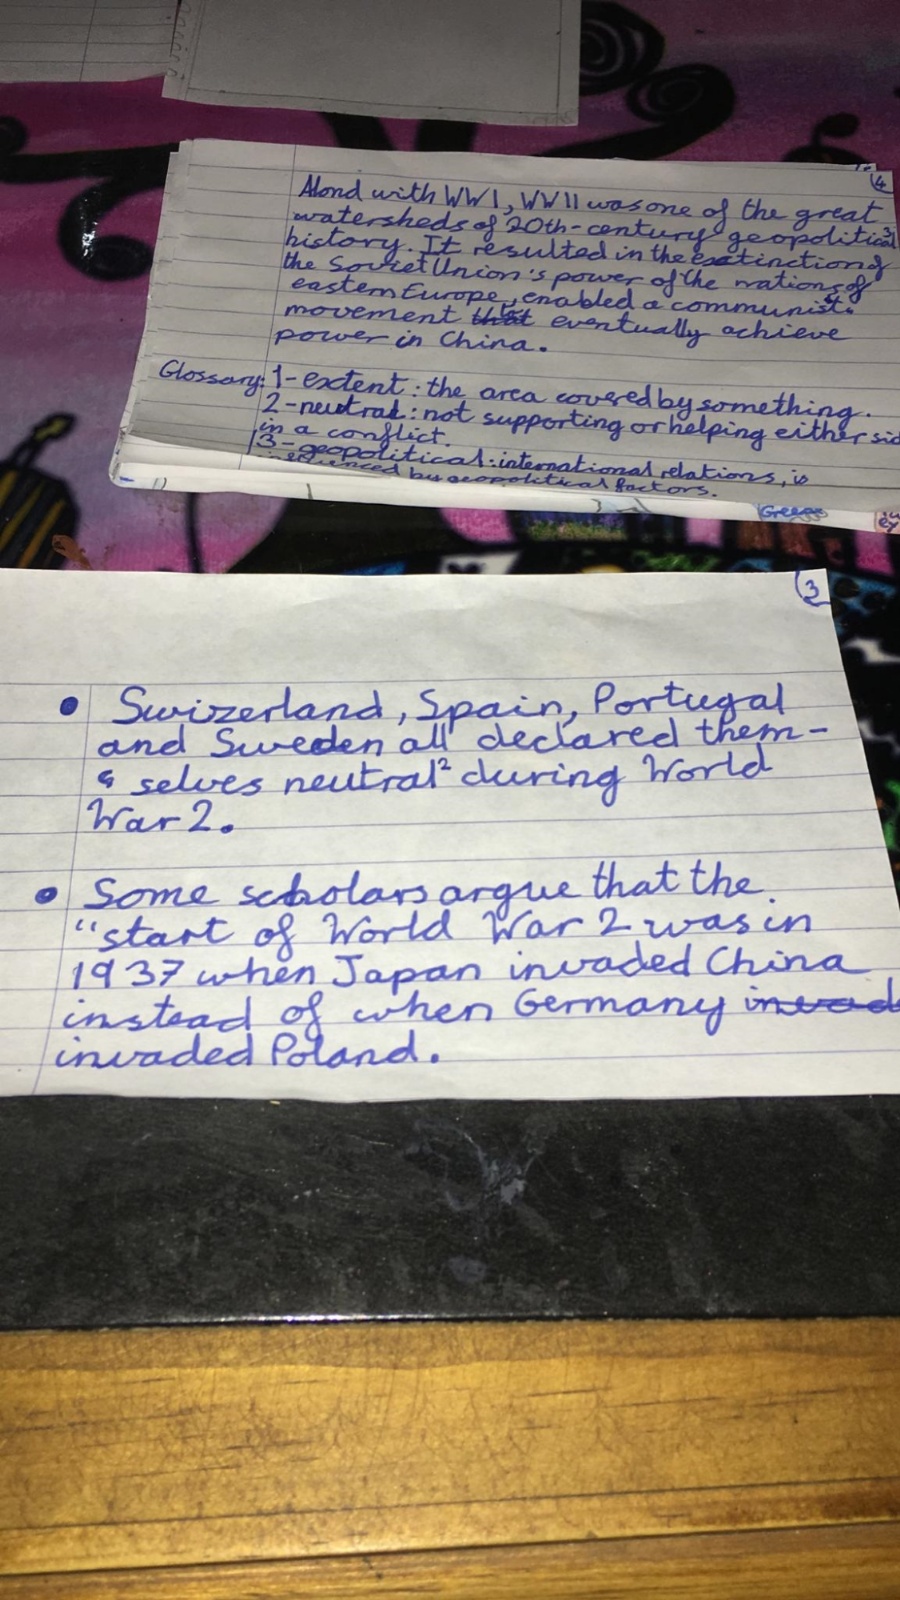 4
Alond with WW1, WW11 was one of the great
watersheds of 20th-century geopolitical3
history. It resulted in the exctinction of
the Soviet Union's power of the nations of
eastern Europe, enabled a communist
movement eventually achieve
power in China.
Glossary: 1-extent: the area covered by something.
2-neutral: not supporting or helping either sid
in a conflict.
3-geopolitical: international relations, is
influenced by geopolitical factors.
Greece
3
• Swizerland, Spain, Portugal
and Sweden all declared them-
selves neutral² during World
War 2.
• Some scholars argue that the
"start of World War 2 was in
1937 when Japan invaded China
instead of when Germany invad
invaded Poland.